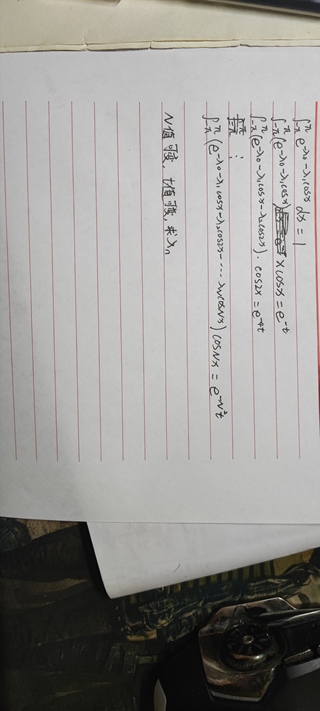 ∫_{-π}^{π} e^{-λ0-λ1cosx} dx = 1
∫_{-π}^{π} (e^{-λ0-λ1cosx}) × cosx = e^{-t}
∫_{-π}^{π} (e^{-λ0-λ1cosx-λ2cos2x}) · cos2x = e^{-4t}
⋮
∫_{-π}^{π} (e^{-λ0-λ1cosx-λ2cos2x-⋯λNcosNx}) cosNx = e^{-N²t}
N值可变，t值可变，求λn